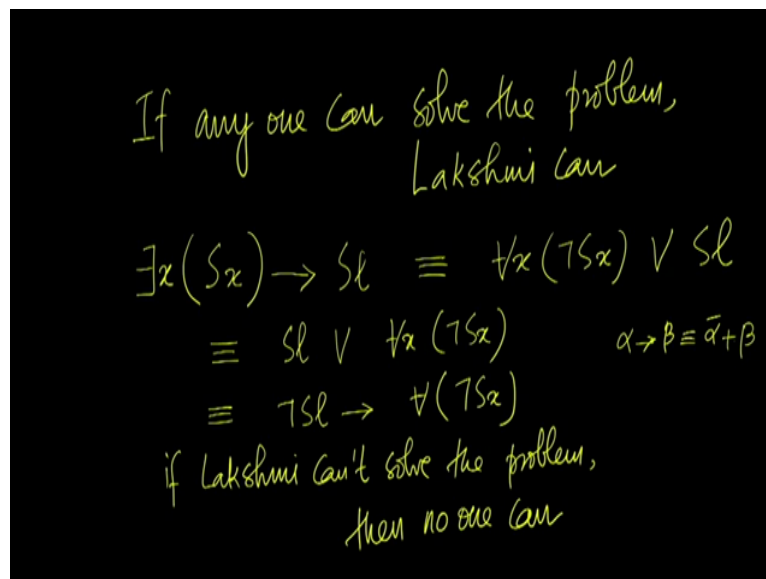 If any one can solve the problem,
Lakshmi can
∃x(Sx) → Sl ≡ ∀x(¬Sx) ∨ Sl
≡ Sl ∨ ∀x(¬Sx)
α → β ≡ ᾱ + β
≡ ¬Sl → ∀(¬Sx)
if Lakshmi can't solve the problem,
then no one can